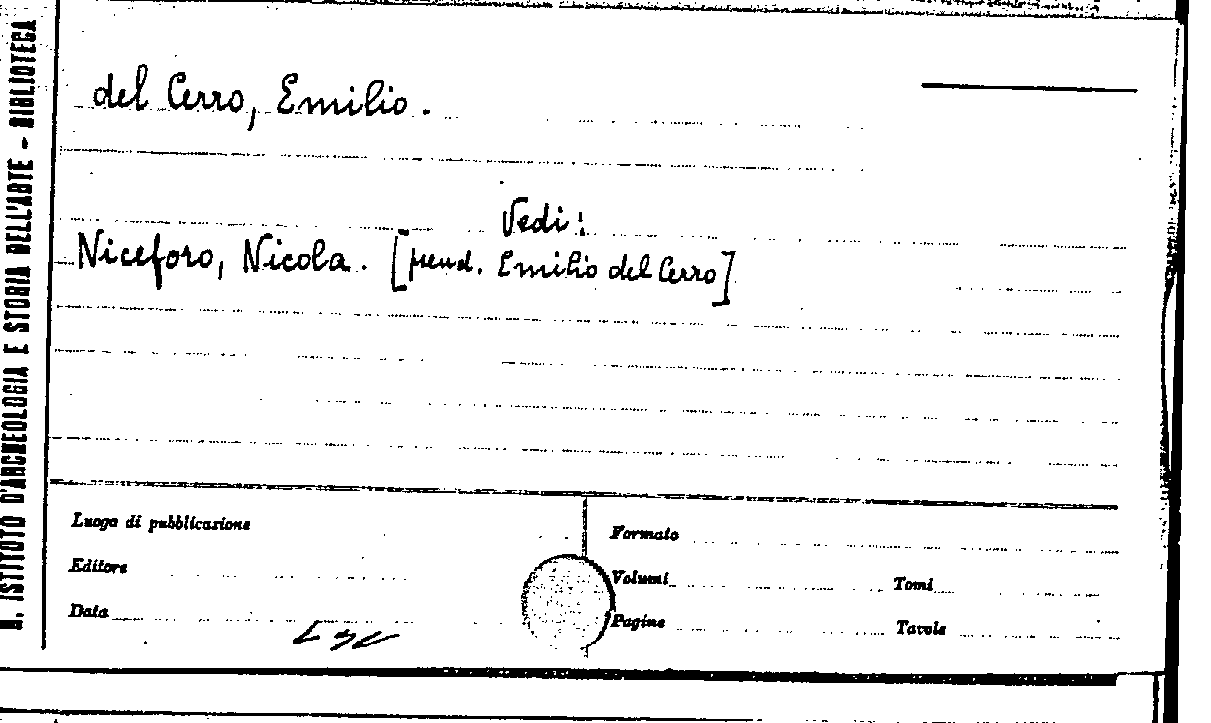 R. ISTITUTO D'ARCHEOLOGIA E STORIA DELL'ARTE - BIBLIOTECA
del Cerro, Emilio.
Vedi:
Niceforo, Nicola. [pseud. Emilio del Cerro]
Luogo di pubblicazione
Formato
Editore
Volumi
Tomi
Data
Pagine
Tavole